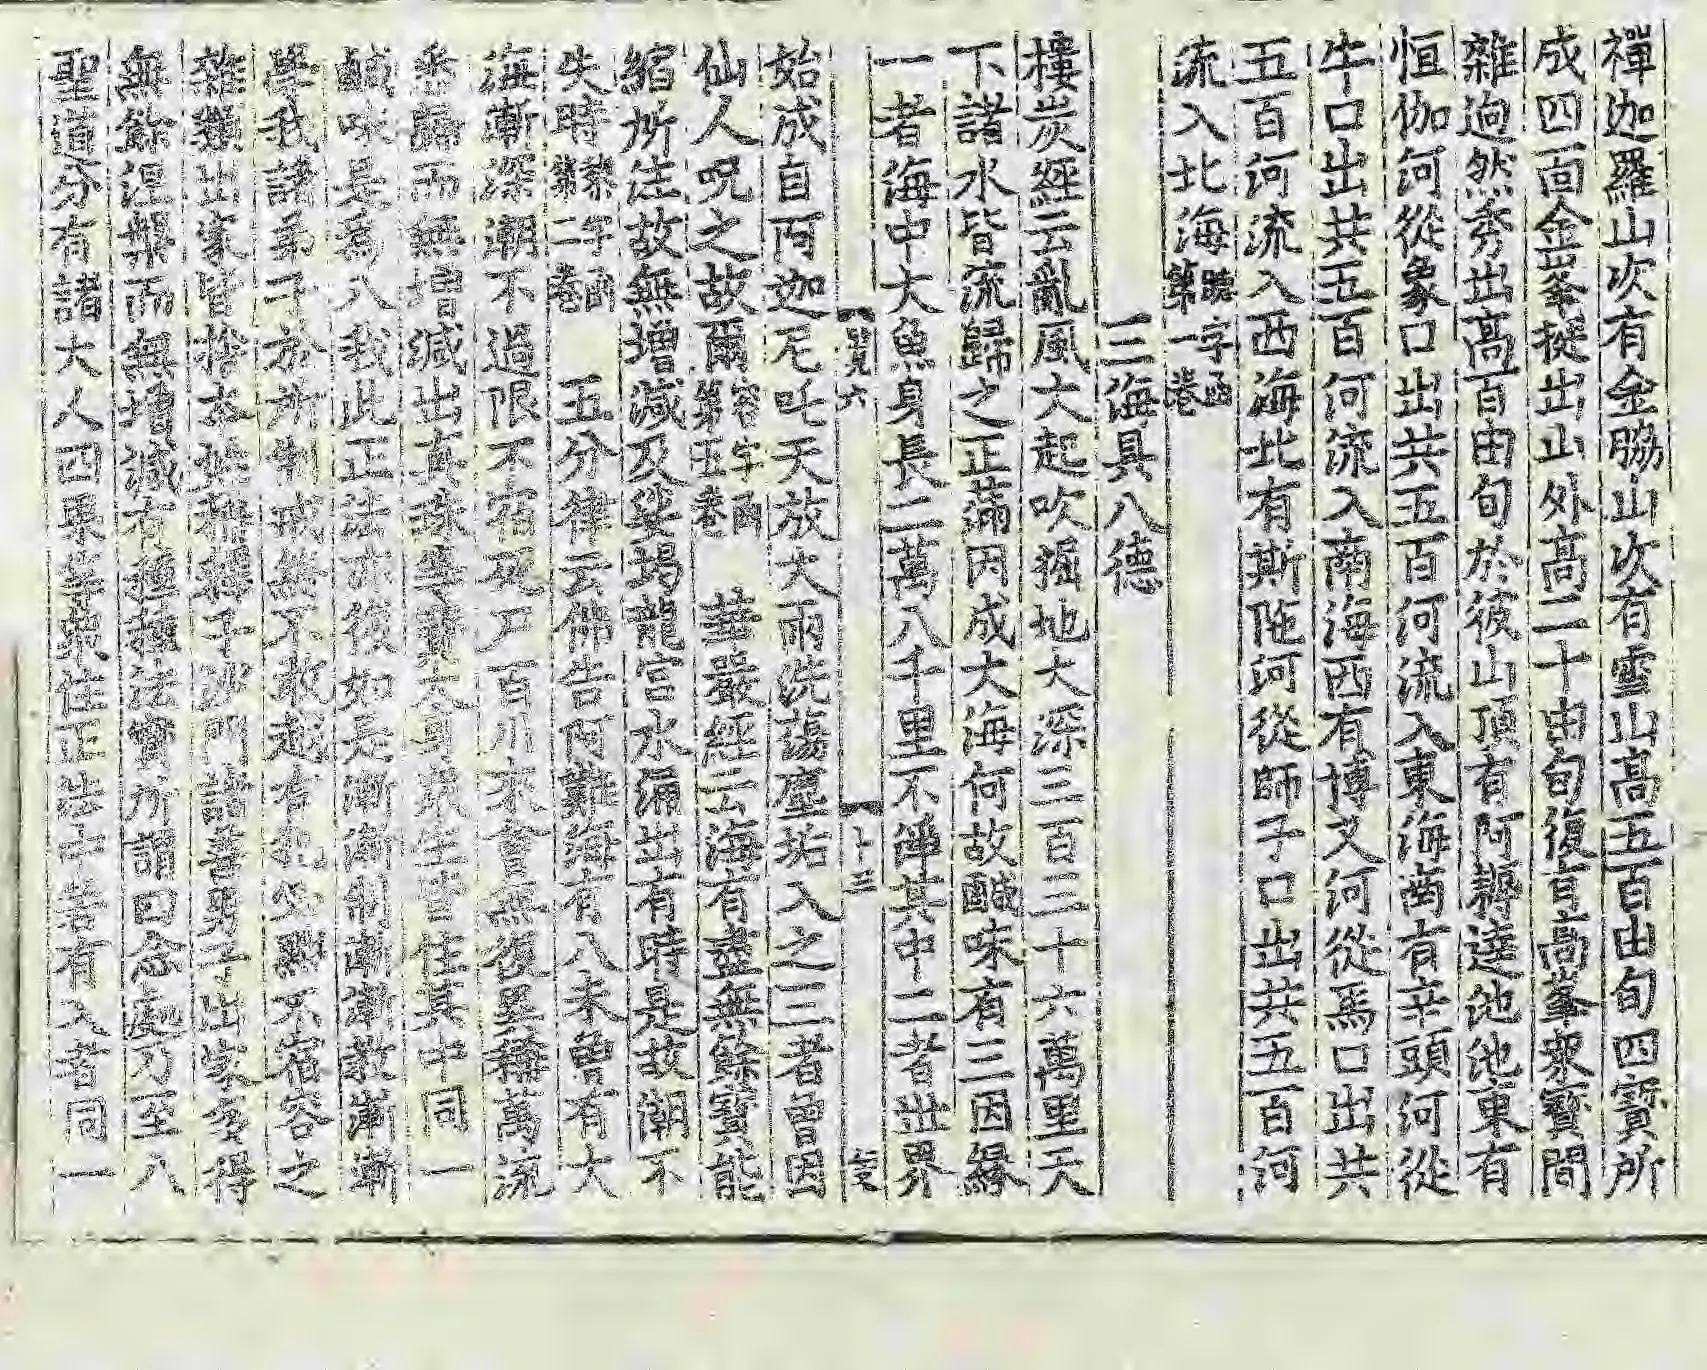 禪迦羅山次有金脇山次有雪山高五百由旬四寶所
成四面金峯挺出山外高二十由旬復有高峯眾寶間
雜逈然秀出高百由旬於彼山頂有阿耨達池池東有
恒伽河從象口出共五百河流入東海南有辛頭河從
牛口出共五百河流入南海西有博叉河從馬口出共
五百河流入西海北有斯陁河從師子口出共五百河
流入北海第一卷 字函
三海具八德
樓炭經云亂風大起吹掘地大深三百三十六萬里天
下諸水皆流歸之正滿因成大海何故醎味有三因緣
一者海中大魚身長二萬八千里不淨其中二者世界
六 十三
始成自阿迦尼吒天放大雨洗蕩塵垢入之三者曾因
仙人呪之故爾第五卷 容字函 華嚴經云海有盡無餘寶能
縮所注故無增減及娑竭龍宮水涌出有時是故潮不
失時 二卷 字函 五分律云佛告阿難海有八未曾有大
海漸深潮不過限不宿死尸百川來會無復異稱萬流
悉歸而無增減出真珠等寶大身眾生皆住其中同一
鹹味是為八我此正法亦復如是漸漸制漸漸教漸漸
學我諸弟子於所制戒終不敢越有犯必黜不宿容之
雜類出家皆捨本姓稱釋子沙門諸善男子出家多得
無餘涅槃而無增減有種種法寶所謂四念處乃至八
聖道分有諸大人四果等類住正法中若有入者同一